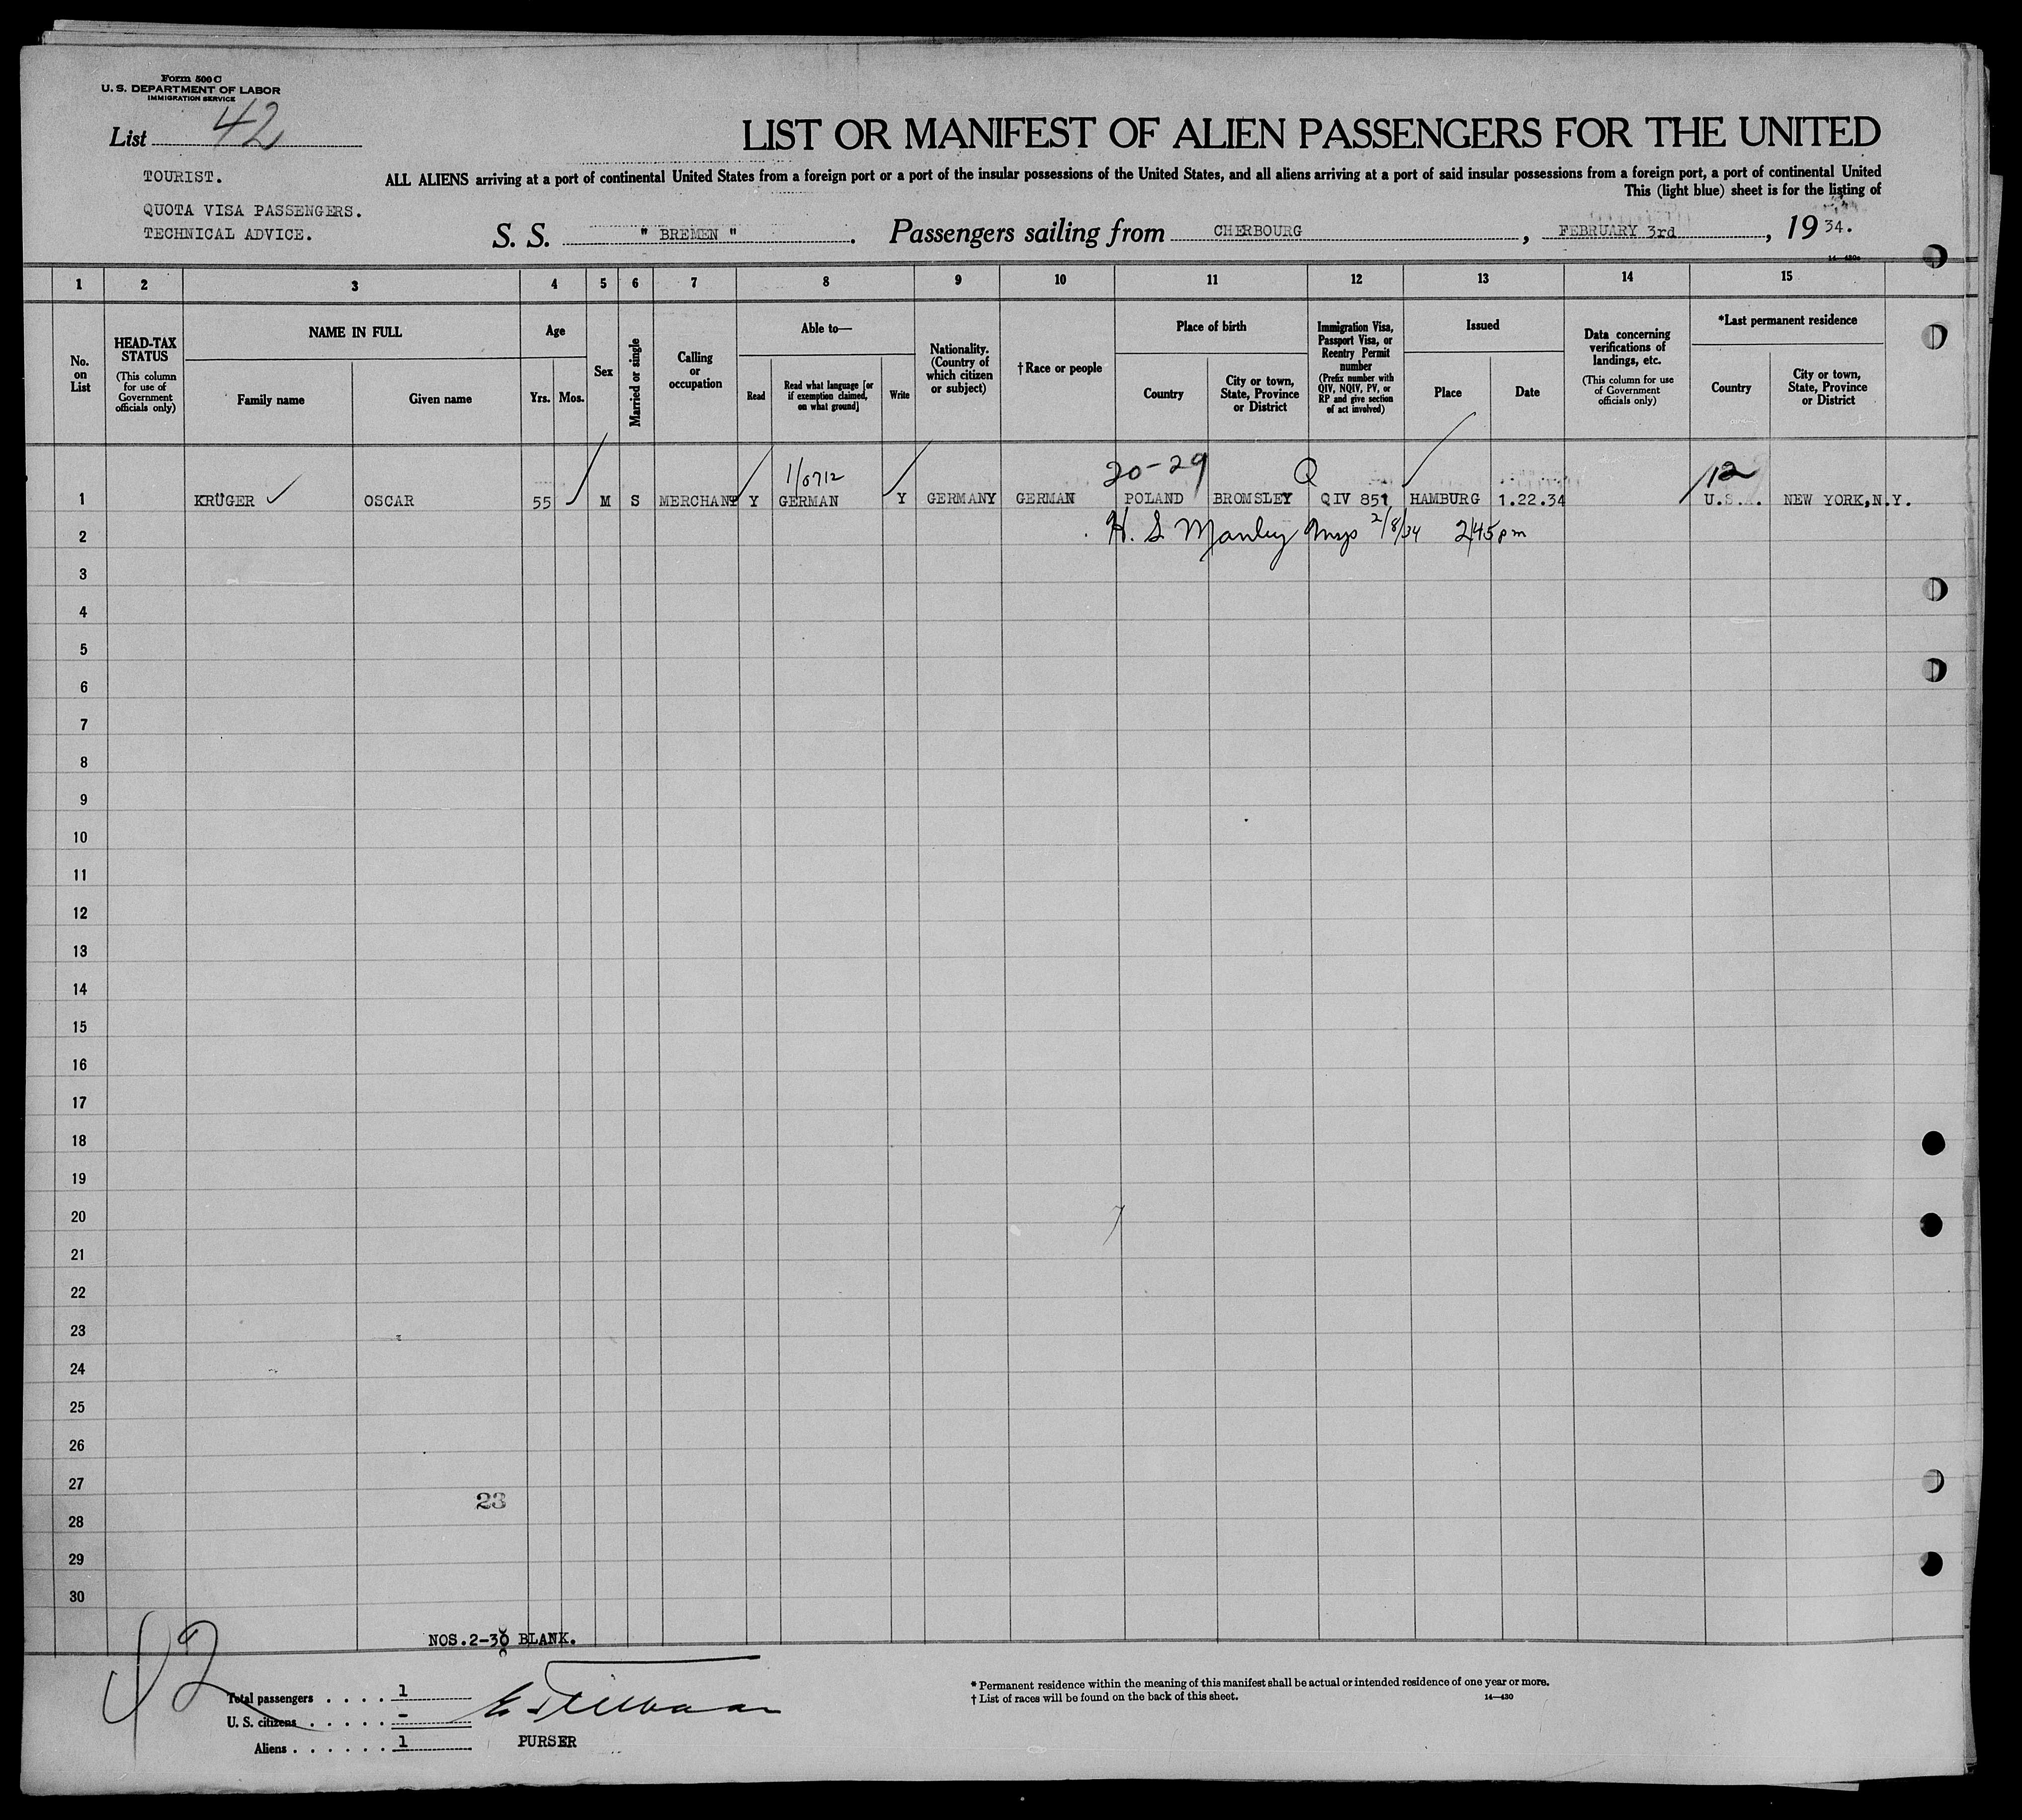 Form 500 C
U. S. DEPARTMENT OF LABOR
IMMIGRATION SERVICE
List 42
LIST OR MANIFEST OF ALIEN PASSENGERS FOR THE UNITED
TOURIST.
ALL ALIENS arriving at a port of continental United States from a foreign port or a port of the insular possessions of the United States, and all aliens arriving at a port of said insular possessions from a foreign port, a port of continental United
This (light blue) sheet is for the listing of
QUOTA VISA PASSENGERS.
TECHNICAL ADVICE.
S. S. " BREMEN ". Passengers sailing from CHERBOURG, FEBRUARY 3rd, 1934.
1 2 3 4 5 6 7 8 9 10 11 12 13 14 15
No. on List
HEAD-TAX STATUS
(This column for use of Government officials only)
NAME IN FULL
Family name
Given name
Age
Yrs. Mos.
Sex
Married or single
Calling or occupation
Able to—
Read
Read what language [or if exemption claimed, on what ground]
Write
Nationality. (Country of which citizen or subject)
† Race or people
Place of birth
Country
City or town, State, Province or District
Immigration Visa, Passport Visa, or Reentry Permit number
(Prefix number with QIV, NQIV, PV, or RP and give section of act involved)
Issued
Place
Date
Data concerning verifications of landings, etc.
(This column for use of Government officials only)
*Last permanent residence
Country
City or town, State, Province or District
20-29 Q 12
1 KRÜGER ✓ OSCAR 55 M S MERCHANT Y GERMAN Y GERMANY GERMAN POLAND BROMSLEY QIV 851 HAMBURG 1.22.34 U.S.A. NEW YORK,N.Y.
2 H. S Manley 2/8/34 245 pm
3
4
5
6
7
8
9
10
11
12
13
14
15
16
17
18
19
20
21
22
23
24
25
26
27
23
28
29
30
NOS.2-30 BLANK.
42
Total passengers . . . . 1
U. S. citizens . . . . . -
Aliens . . . . . . 1
PURSER
* Permanent residence within the meaning of this manifest shall be actual or intended residence of one year or more.
† List of races will be found on the back of this sheet.
14—430